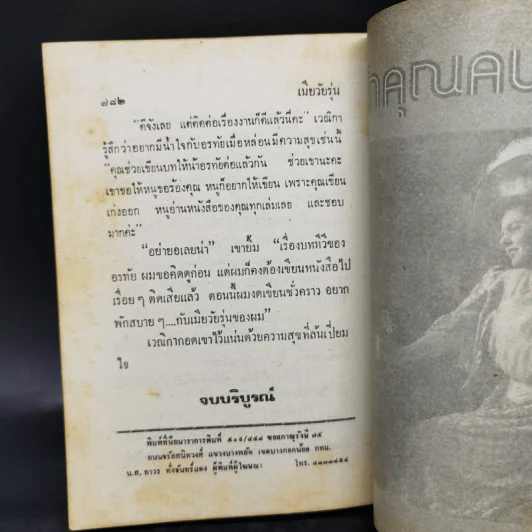 ๗๘๒ เมียวัยรุ่น
"ดีจังเลย แต่คิดต่อเรื่องงานก็ดีแล้วนี่คะ" เวณิกา
รู้สึกว่าอยากมีน้ำใจกับอรทัยเมื่อหล่อนมีความสุขเช่นนี้
"คุณช่วยเขียนบทให้น้าอรทัยต่อแล้วกัน ช่วยเขานะคะ
เขาขอให้หนูขอร้องคุณ หนูก็อยากให้เขียน เพราะคุณเขียน
เก่งออก หนูอ่านหนังสือของคุณทุกเล่มเลย และชอบ
มากค่ะ"
"อย่ายอเลยน่า" เขายิ้ม "เรื่องบททีวีของ
อรทัย ผมขอคิดดูก่อน แต่ผมก็คงต้องเขียนหนังสือไป
เรื่อยๆ ติดเสียแล้ว ตอนนี้ผมงดเขียนชั่วคราว อยาก
พักสบายๆ....กับเมียวัยรุ่นของผม"
เวณิกากอดเขาไว้แน่นด้วยความสุขที่ล้นเปี่ยม
ใจ
จบบริบูรณ์
ถนนจรัลสนิทวงศ์ แขวงบางพลัด เขตบางกอกน้อย กทม.
น.ส. ถาวร ผู้พิมพ์ผู้โฆษณา โทร.